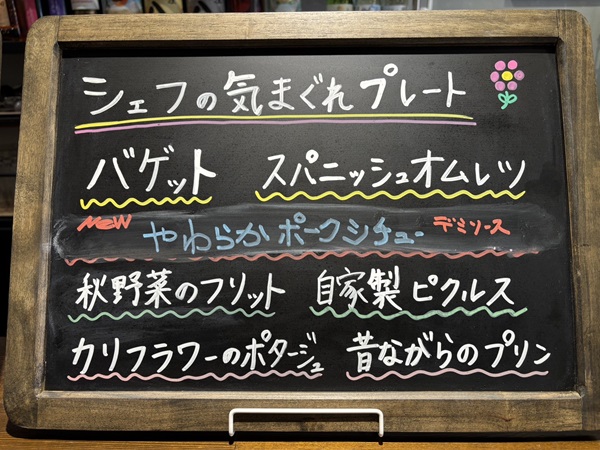 シェフの気まぐれプレート
バゲット スパニッシュオムレツ
New やわらかポークシチュー デミソース
秋野菜のフリット 自家製ピクルス
カリフラワーのポタージュ 昔ながらのプリン